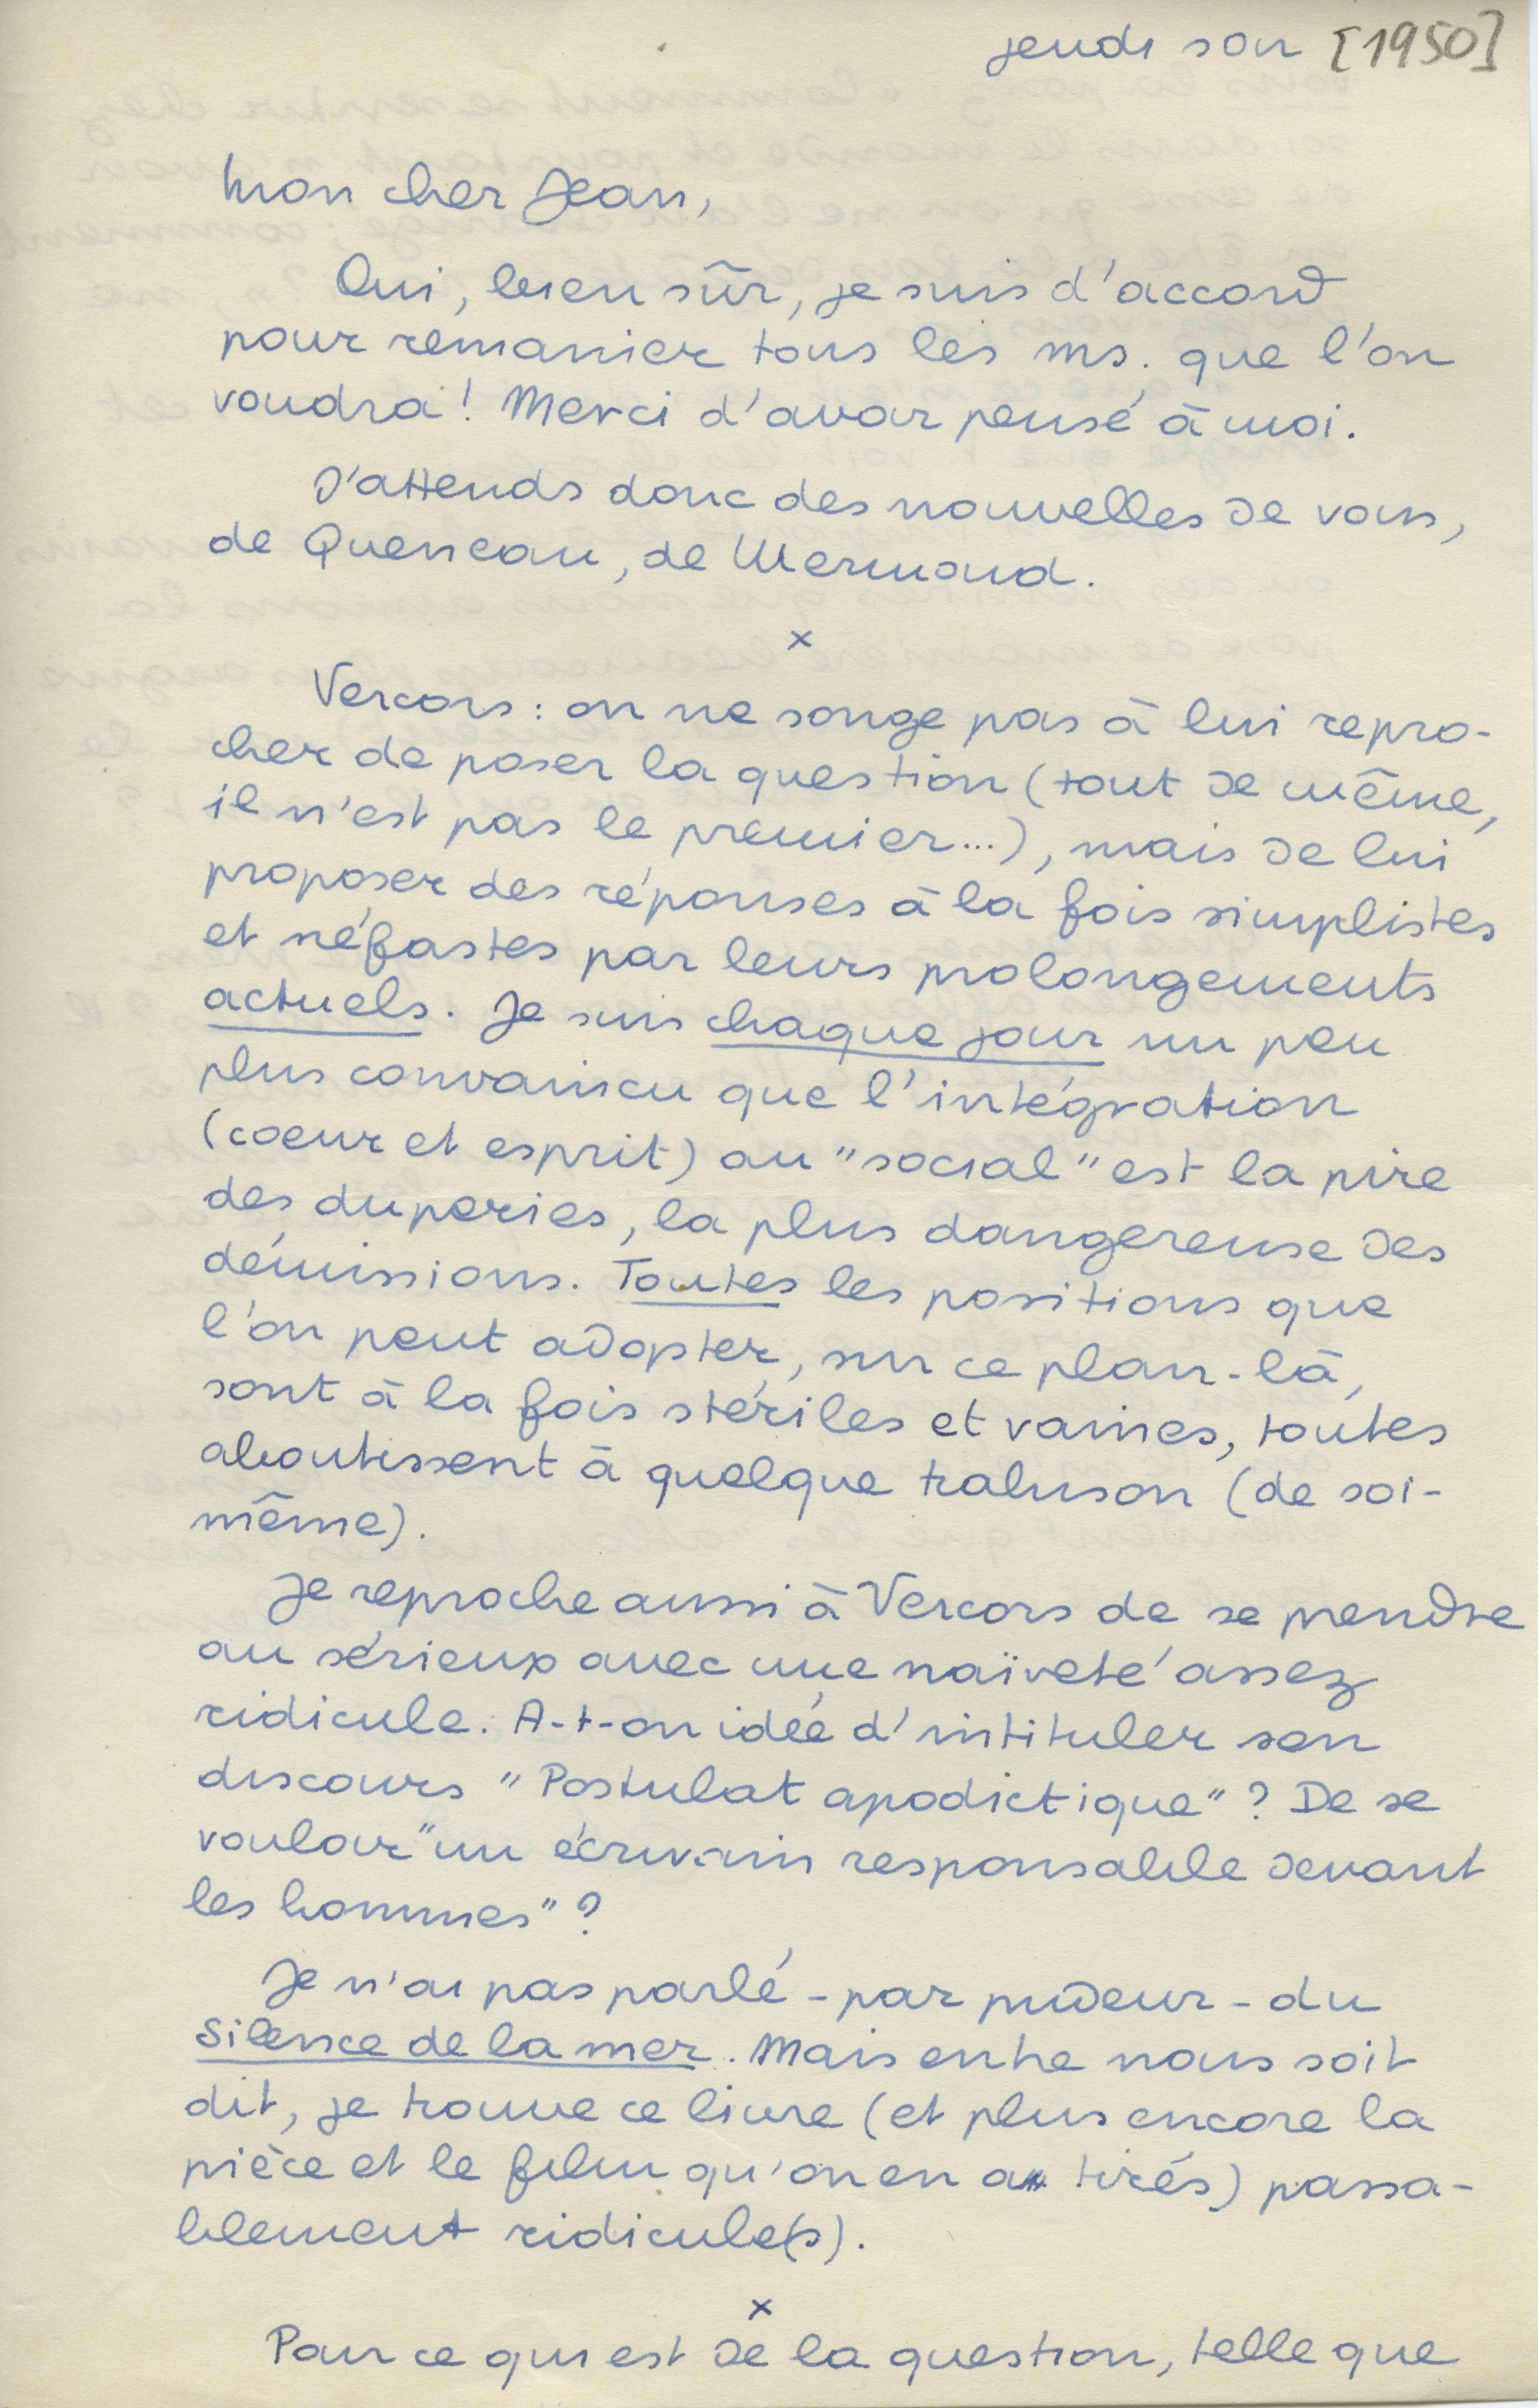 jeudi soir [1950]
Mon cher Jean,
Oui, bien sûr, je suis d'accord
pour remanier tous les ms. que l'on
voudra! Merci d'avoir pensé à moi.
J'attends donc des nouvelles de vous,
de Queneau, de Mermoud.
x
Vercors : on ne songe pas à lui repro-
cher de poser la question (tout de même,
il n'est pas le premier...), mais de lui
proposer des réponses à la fois simplistes
et néfastes par leurs prolongements
actuels. Je suis chaque jour un peu
plus convaincu que l'intégration
(coeur et esprit) au "social" est la pire
des duperies, la plus dangereuse des
démissions. Toutes les positions que
l'on peut adopter, sur ce plan-là,
sont à la fois stériles et vaines, toutes
aboutissent à quelque trahison (de soi-
même).
Je reproche aussi à Vercors de se prendre
au sérieux avec une naïveté assez
ridicule. A-t-on idée d'intituler son
discours "Postulat apodictique"? De se
vouloir "un écrivain responsable devant
les hommes"?
Je n'ai pas parlé - par pudeur - du
Silence de la mer. Mais entre nous soit
dit, je trouve ce livre (et plus encore la
pièce et le film qu'on en a tirés) passa-
blement ridicule(s).
x
Pour ce qui est de la question, telle que